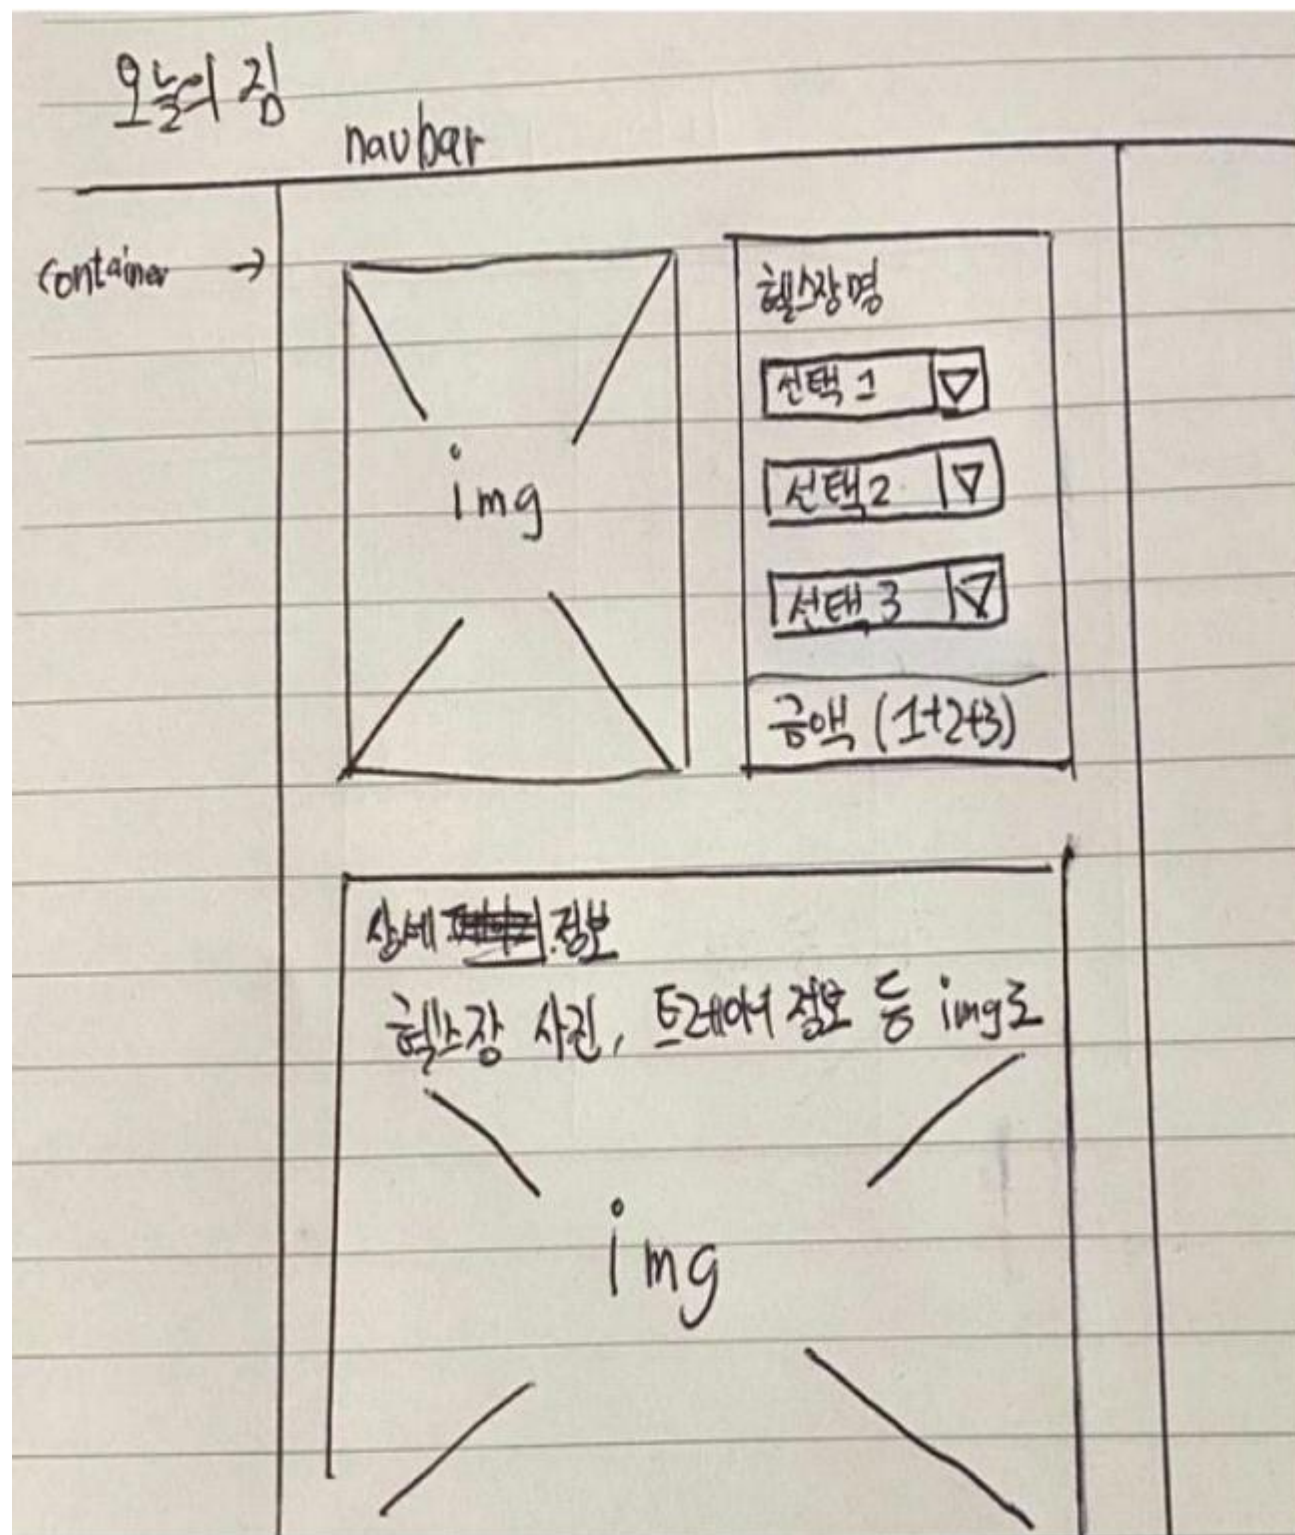 오늘의 짐
navbar
container →
img
헬스장명
선택 1
선택2
선택 3
금액 (1+2+3)
상세 정보
헬스장 사진, 트레이너 정보 등 img로
img